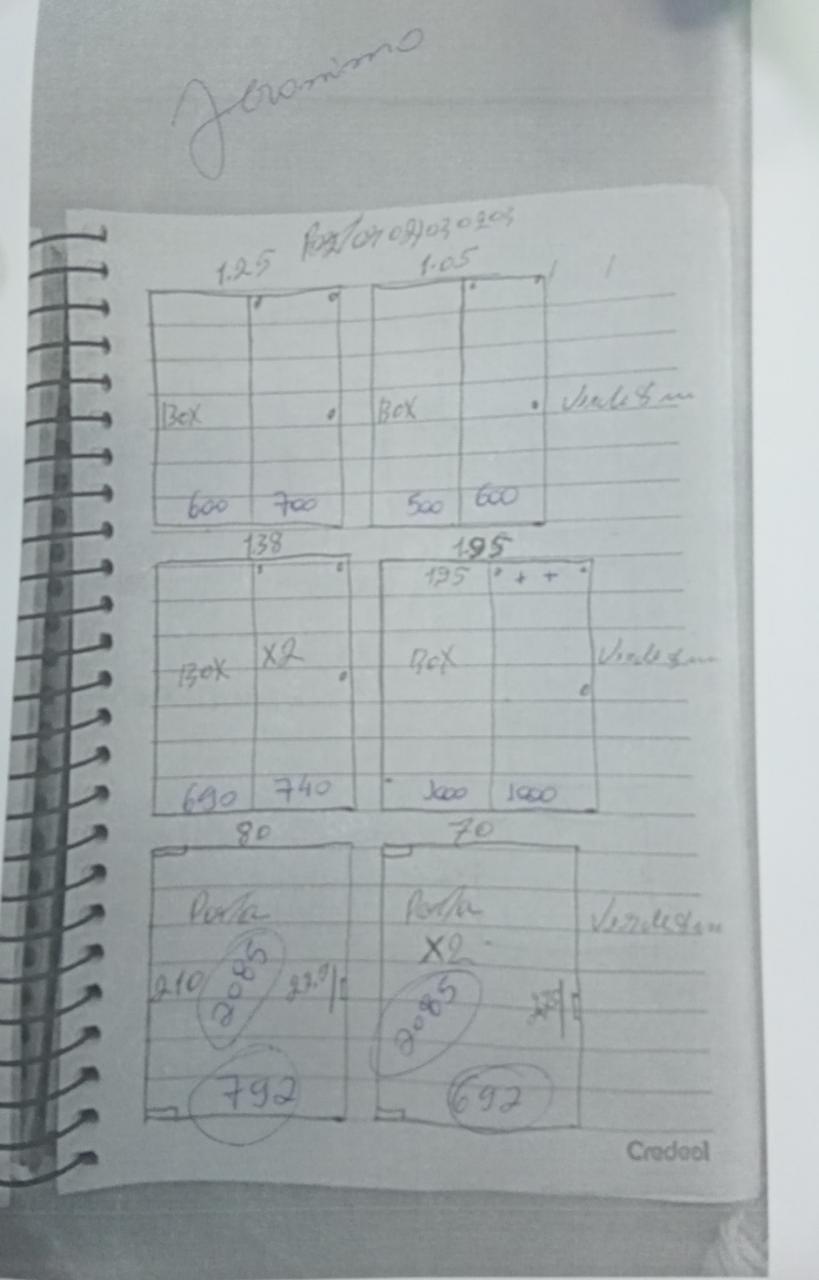 Jeronimo
1.25 1.05
Box Box Verde 8 mm
600 700 500 600
138 195
195 + +
Box X2 Box Verde 8 mm
690 740 1000 1000
80 70
Porta Porta Verde 8 mm
X2
210 2085 2085
792 692
Credeal